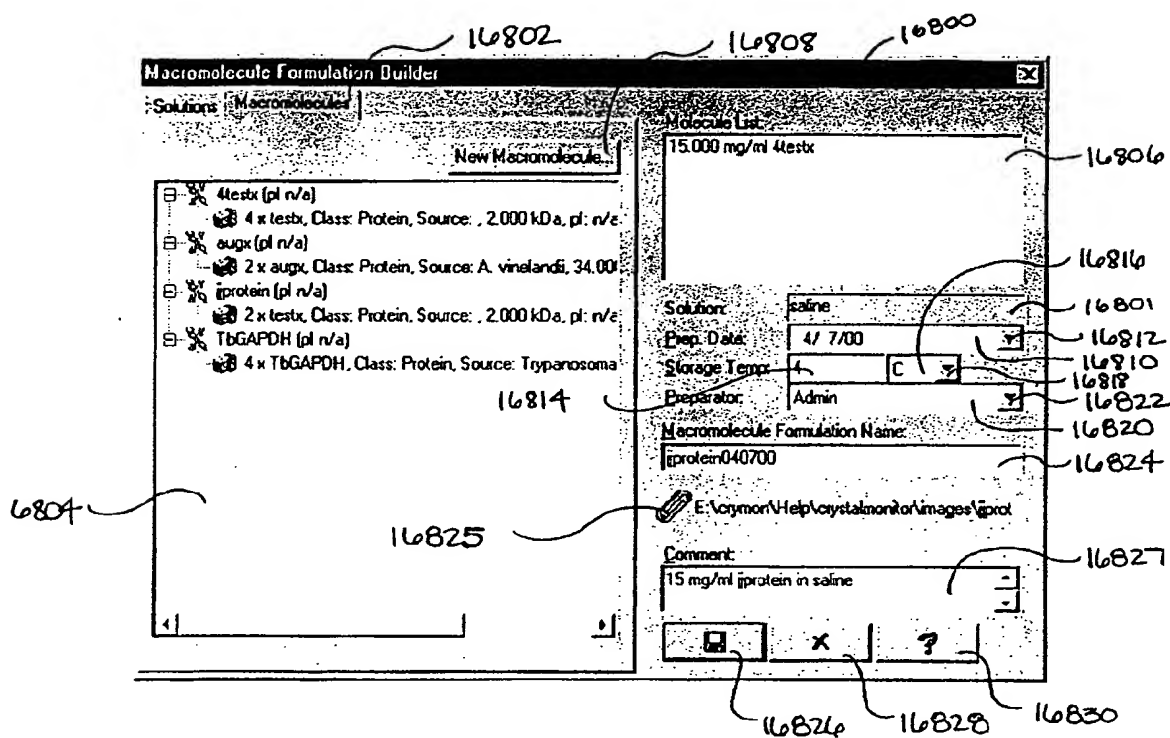 16802
16808
16800
Macromolecule Formulation Builder
Solutions Macromolecules
New Macromolecule...
4testx (pI n/a)
4 x testx, Class: Protein, Source: , 2.000 kDa, pI: n/a
augx (pI n/a)
2 x augx, Class: Protein, Source: A. vinelandii, 34.00
jjprotein (pI n/a)
2 x testx, Class: Protein, Source: , 2.000 kDa, pI: n/a
TbGAPDH (pI n/a)
4 x TbGAPDH, Class: Protein, Source: Trypanosoma
Molecule List:
15.000 mg/ml 4testx
16806
16816
Solution: saline
16801
Prep. Date: 4/ 7/00
16812
16810
Storage Temp: 4 C
16818
16814
Preparator: Admin
16822
16820
Macromolecule Formulation Name:
jjprotein040700
16824
6804
16825
E:\crymon\Help\crystalmonitor\images\jjprot
Comment:
15 mg/ml jjprotein in saline
16827
?
16826
16828
16830